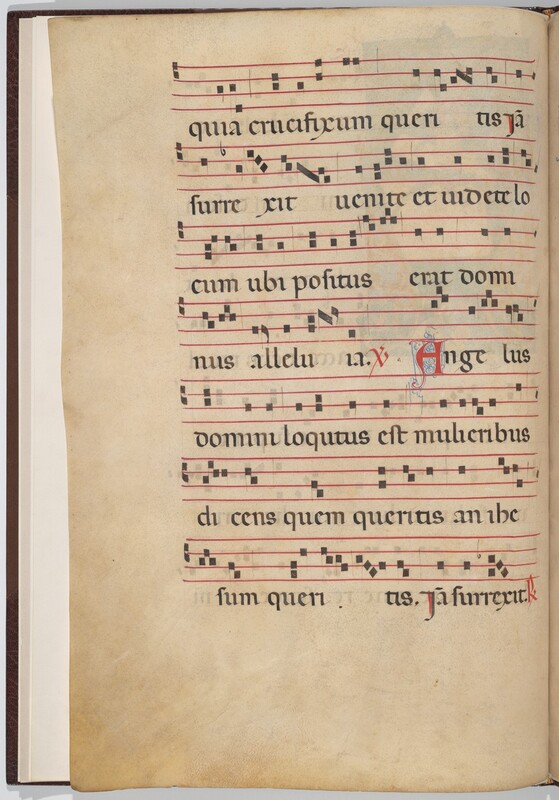 quia crucifixum queri tis Jā
surre xit uenite et uidete lo
cum ubi positus erat domi
nus allelu ia. ℣. Ange lus
domini loqutus est mulieribus
di cens quem queritis an ihe
sum queri tis. Jā surrexit. ℟